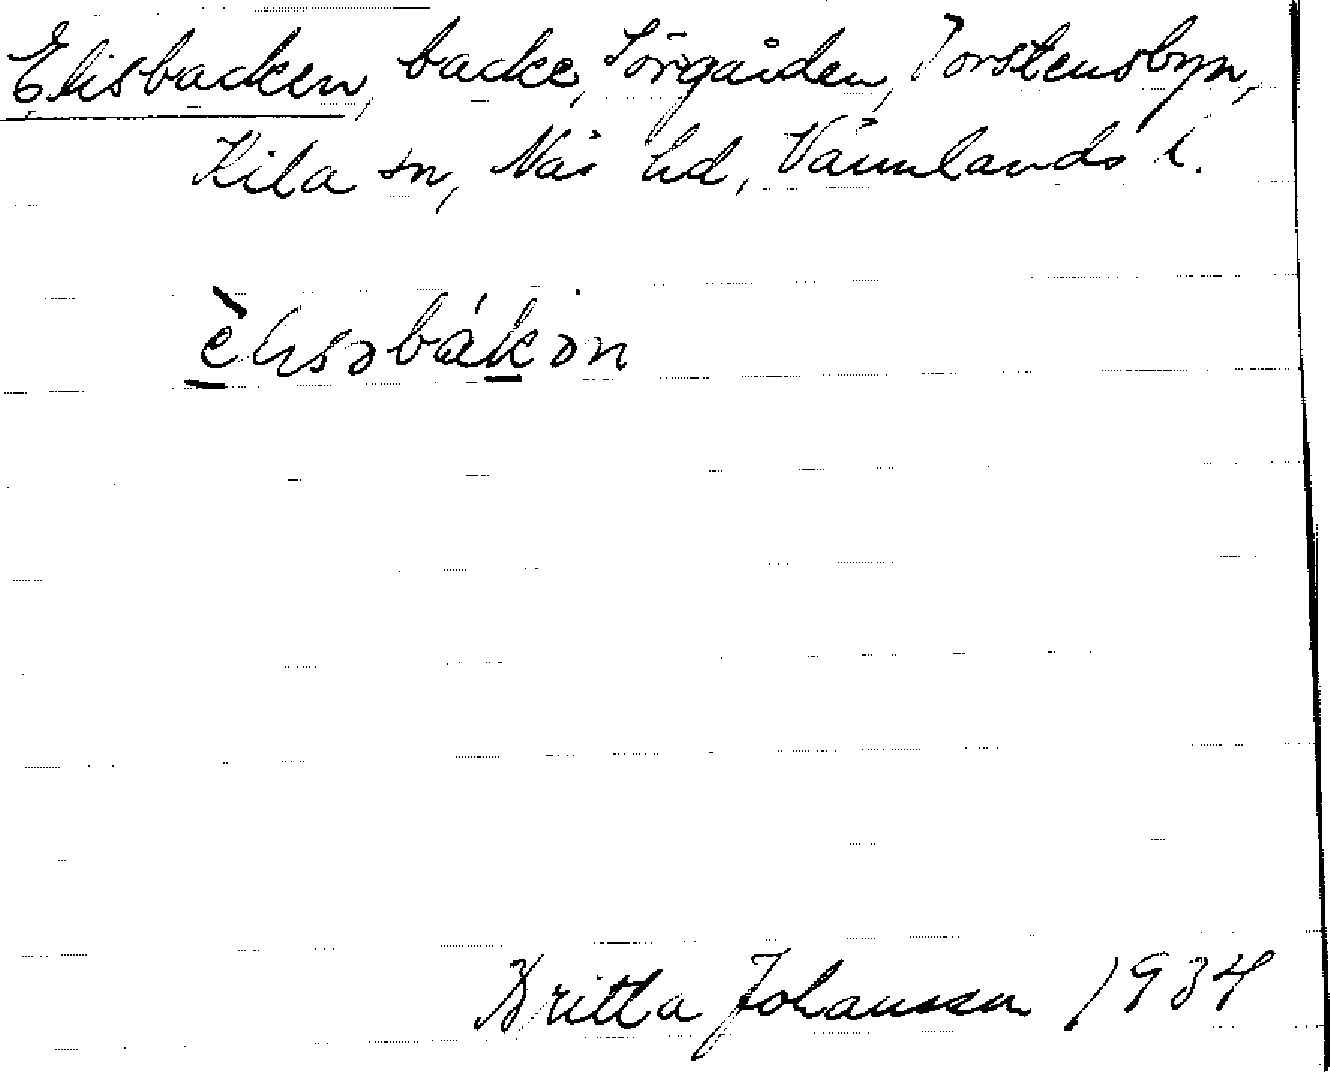 Elisbacken, backe, Sörgården, Torstensbyn,
Kila sn, Näs hd, Värmlands l.
èlisəbákən
Britta Johansson 1934